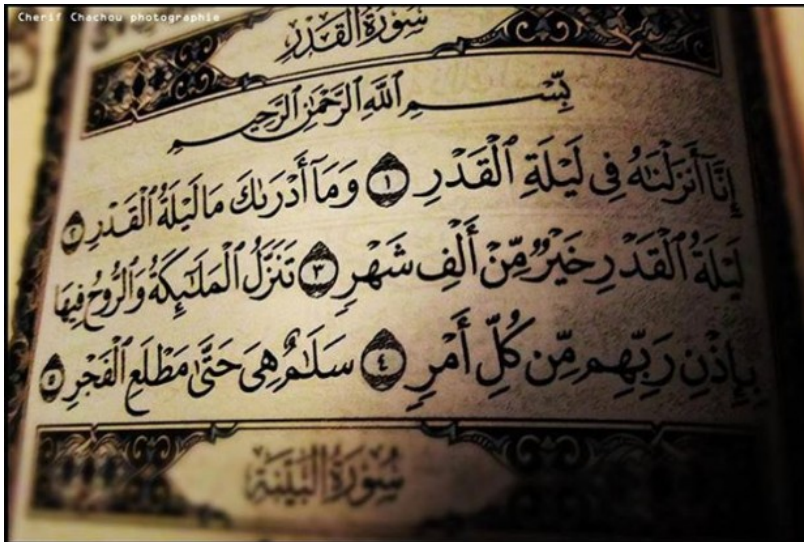 Cherif Chachou photographie
سُورَةُ القَدْرِ
بِسْمِ ٱللَّهِ ٱلرَّحْمَٰنِ ٱلرَّحِيمِ
إِنَّآ أَنزَلْنَٰهُ فِى لَيْلَةِ ٱلْقَدْرِ ١ وَمَآ أَدْرَىٰكَ مَا لَيْلَةُ ٱلْقَدْرِ ٢
لَيْلَةُ ٱلْقَدْرِ خَيْرٌ مِّنْ أَلْفِ شَهْرٍ ٣ تَنَزَّلُ ٱلْمَلَٰٓئِكَةُ وَٱلرُّوحُ فِيهَا
بِإِذْنِ رَبِّهِم مِّن كُلِّ أَمْرٍ ٤ سَلَٰمٌ هِىَ حَتَّىٰ مَطْلَعِ ٱلْفَجْرِ ٥
سُورَةُ البَيِّنَةِ